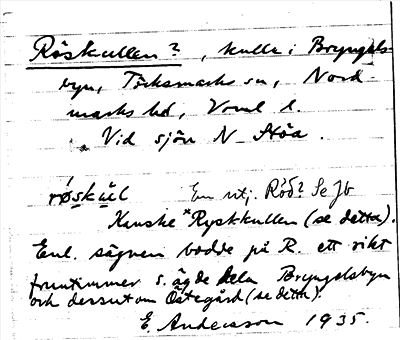 Röskullen? , kulle i Bryngels-
byn, Töcksmarks sn, Nord-
marks hd, Vrml l.
Vid sjön N Höa.
røskul En utj. Röd? Se Jb
Kanske *Ryskkullen (se detta).
Enl. sägnen bodde på R. ett rikt
fruntimmer s. ägde hela Bryngelsbyn
och dessutom Östegård (se detta).
E. Andersson 1935.